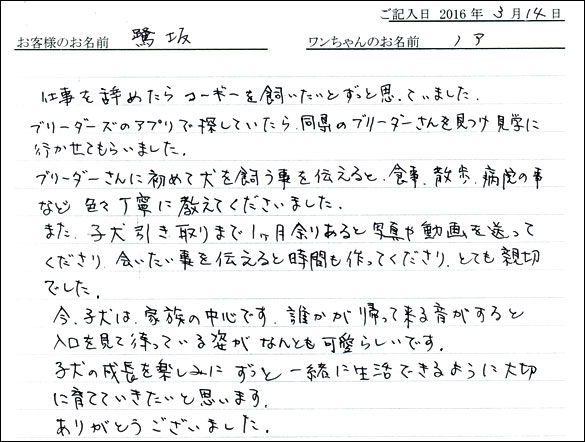 ご記入日 2016 年 3 月 14 日
お客様のお名前 鷺坂 ワンちゃんのお名前 ノア
仕事を辞めたらコーギーを飼いたいとずっと思っていました.
ブリーダーズのアプリで探していたら、同県のブリーダーさんを見つけ見学に
行かせてもらいました.
ブリーダーさんに初めて犬を飼う事を伝えると、食事、散歩、病院の事
など 色々丁寧に教えてくださいました.
また、子犬引き取りまで1ヶ月余りあると写真や動画を送って
くださり、会いたい事を伝えると時間も作ってくださり、とても親切
でした.
今、子犬は、家族の中心です. 誰かが帰って来る音がすると
入口を見て待っている姿がなんとも可愛らしいです.
子犬の成長を楽しみに ずっと一緒に生活できるように大切
に育てていきたいと思います.
ありがとうございました.